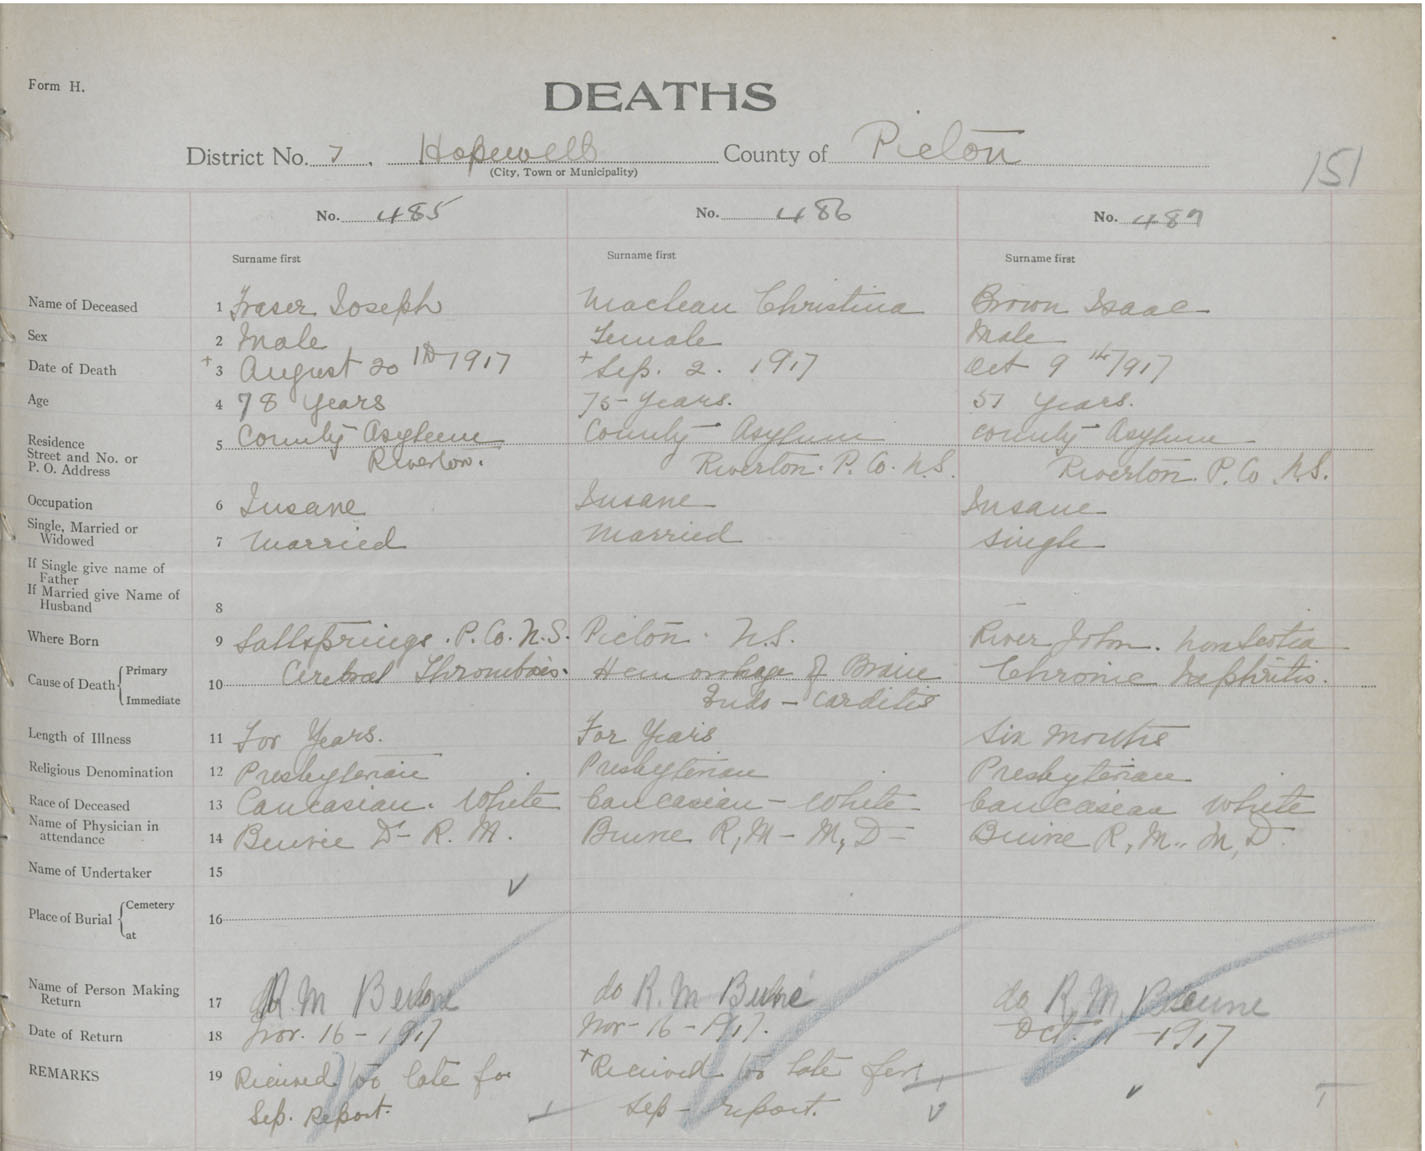 Form H.
DEATHS
District No. 7. Hopewell County of Picton
(City, Town or Municipality)
151
No. 485 No. 486 No. 487
Surname first Surname first Surname first
Name of Deceased 1 Fraser Joseph Maclean Christina Brown Isaac
Sex 2 Male Female Male
Date of Death + 3 August 20 1917 + Sep. 2. 1917 Oct 9th 1917
Age 4 78 Years 75 Years. 57 Years.
Residence
Street and No. or
P. O. Address
5 County Asylum County Asylum County Asylum
Riverton. Riverton. P. Co. N.S. Riverton. P. Co. N.S.
Occupation 6 Insane Insane Insane
Single, Married or
Widowed 7 Married Married Single
If Single give name of
Father
If Married give Name of
Husband 8
Where Born 9 Saltsprings. P. Co. N.S. Picton. N.S. River John. Nova Scotia
Cause of Death { Primary
Immediate
10 Cerebral Thrombosis. Hemorrhage of Braine Chronic Nephritis.
Endo - Carditis
Length of Illness 11 For Years. For Years Six Months
Religious Denomination 12 Presbyterian Presbyterian Presbyterian
Race of Deceased 13 Caucasian. White Caucasian - White Caucasian White
Name of Physician in
attendance 14 Dr R. M. R, M - M, D - R, M.. M, D.
Name of Undertaker 15
Place of Burial { Cemetery
at
16
Name of Person Making
Return 17 R. M do R. M do R. M.
Date of Return 18 Nov. 16 - 1917 Nov - 16 - 1917. Oct. 1917
REMARKS 19 Recieved too late for + Recieved too late for
Sep. Report. Sep - report.